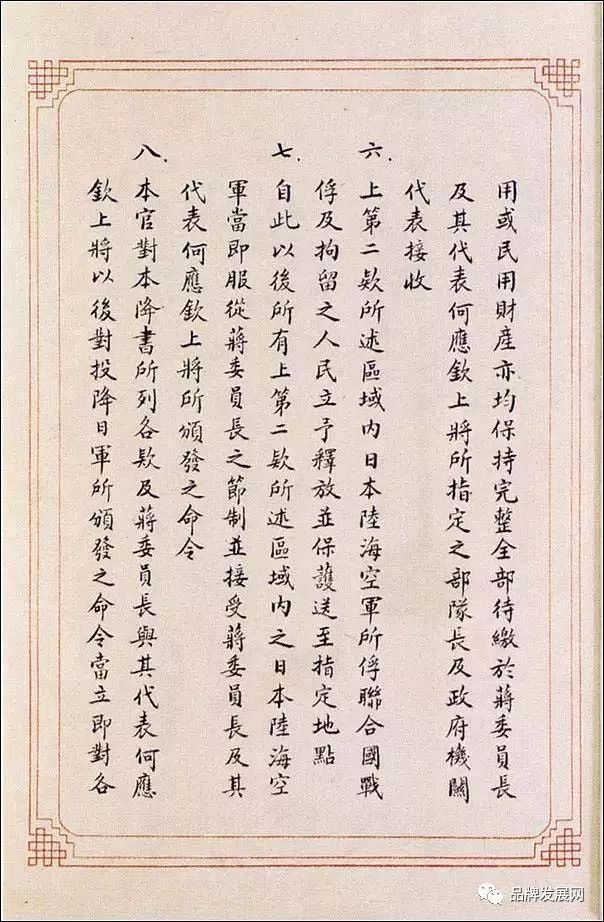 用或民用財產亦均保持完整全部待繳於蔣委員長
及其代表何應欽上將所指定之部隊長及政府機關
代表接收
六.上第二欵所述區域內日本陸海空軍所俘聯合國戰
俘及拘留之人民立予釋放並保護送至指定地點
七.自此以後所有上第二欵所述區域內之日本陸海空
軍當即服從蔣委員長之節制並接受蔣委員長及其
代表何應欽上將所頒發之命令
八.本官對本降書所列各欵及蔣委員長與其代表何應
欽上將以後對投降日軍所頒發之命令當立即對各
品牌发展网